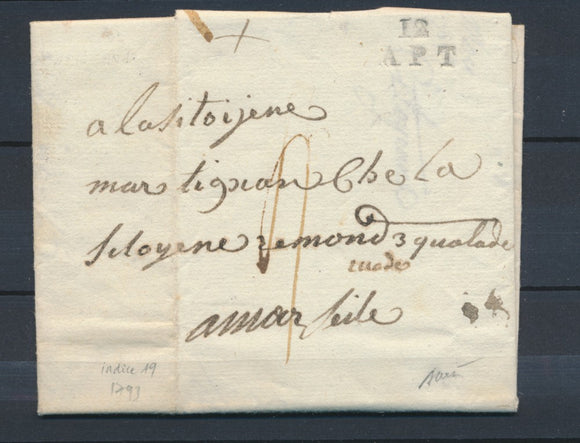 12
APT
a la sitoijene
martignan Che La
sitoyene remond 3 qualade
a mar seile
indice 19
1793